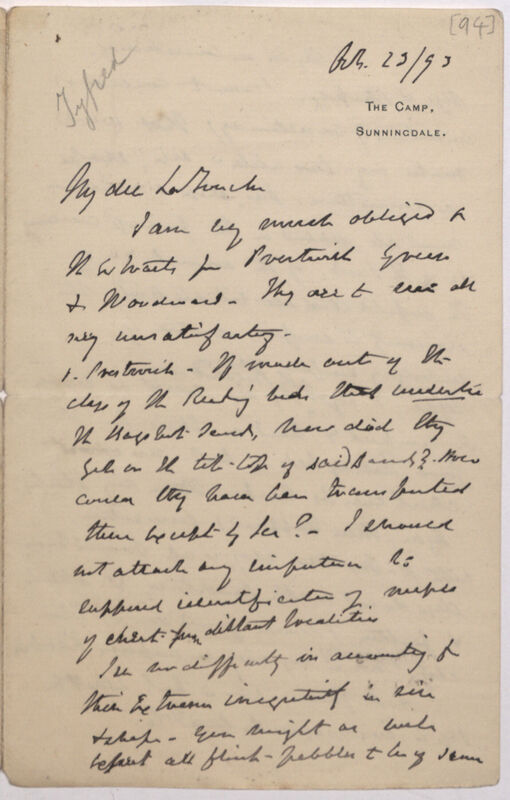 [94]
Typed
Feb. 23/93
THE CAMP,
SUNNINGDALE.
My dear La Touche
I am very much obliged to
the extracts for Prestwich Green
& Woodward - They are to me all
very unsatisfactory -
1. Prestwich - If made out of the
clays of the Reading beds that underlie
the Bagshot Sands, how did they
get on the tip-top of said Sands? How
could they have been transported
there except by Ice? - I should
not attach any importance to
supposed identification of
of chert from distant localities
I see no difficulty in accounting for
their extreme irregularity in size
& shape - You might as well
expect all flint-pebbles to be of same